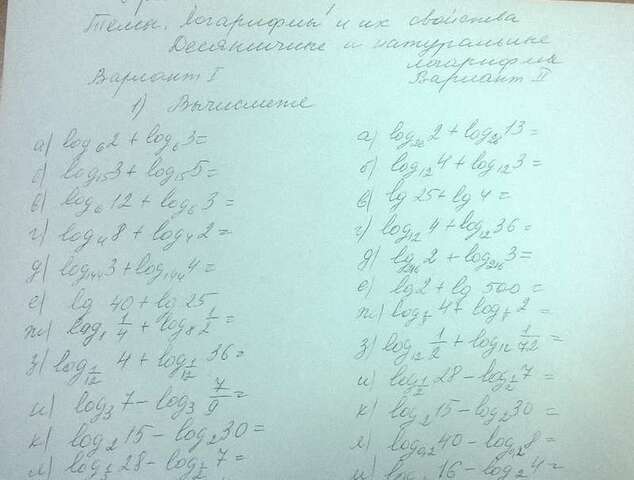 Тема: Логарифмы и их свойства
Десятичные и натуральные
логарифмы
Вариант I
Вариант II
1) Вычислите
а) log₆2 + log₆3 =
б) log₁₅3 + log₁₅5 =
в) log₆12 + log₆3 =
г) log₄8 + log₄2 =
д) log₁₄₄3 + log₁₄₄4 =
е) lg 40 + lg 25
ж) log₈ 1/4 + log₈ 1/2 =
з) log_{1/12} 4 + log_{1/12} 36 =
и) log₃7 − log₃ 7/9 =
к) log₂15 − log₂30 =
л) 28 − 7 =
а) log₂₆2 + log₂₆13 =
б) log₁₂4 + log₁₂3 =
в) lg 25 + lg 4 =
г) log₁₂4 + log₁₂36 =
д) log₂₁₆2 + log₂₁₆3 =
е) log2 + lg 500 =
ж) 4 + 2 =
з) log₁₂ 1/2 + log₁₂ 1/72 =
и) log_{1/2} 28 − log_{1/2} 7 =
к) log₂15 − log₂30 =
л) log₀,₂40 − log₀,₂8 =
16 − log₂4 =